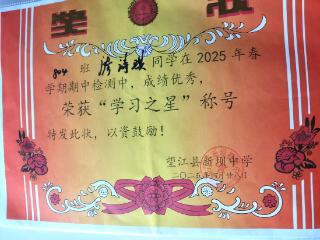 奖状
804 班 同学在 2025 年春
学期期中检测中，成绩优秀，
荣获“学习之星”称号
特发此状，以资鼓励！
望江县新坝中学
二〇二五年四月廿八日